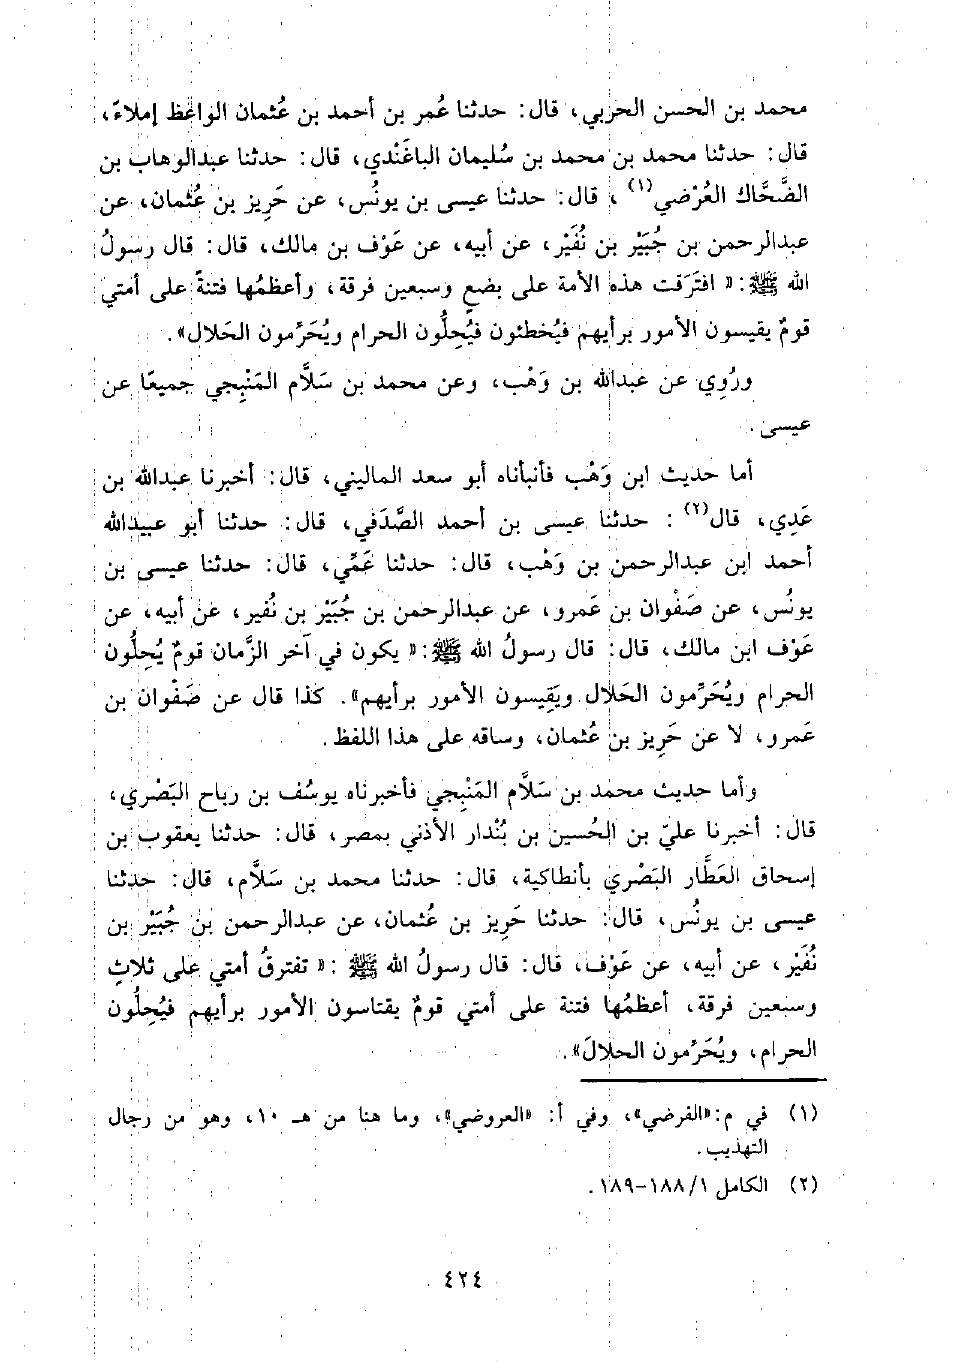 محمد بن الحسن الحربي، قال: حدثنا عُمر بن أحمد بن عُثمان الواعظ إملاءً،
قال: حدثنا محمد بن محمد بن سُليمان الباغَنْدي، قال: حدثنا عبدالوهاب بن
الضَّحَّاك العُرْضي(١)، قال: حدثنا عيسى بن يونُس، عن حَرِيز بن عُثمان، عن
عبدالرحمن بن جُبَيْر بن نُفَيْر، عن أبيه، عن عَوْف بن مالك، قال: قال رسولُ
الله ﷺ: «افتَرَقت هذه الأمة على بضعٍ وسبعين فرقة، وأعظمُها فتنةً على أمتي
قومٌ يقيسون الأمور برأيهم فيُخطئون فيُحِلُّون الحرام ويُحَرِّمون الحَلال».
ورُوِي عن عبدالله بن وَهْب، وعن محمد بن سَلاَّم المَنْبِجي جميعًا عن
عيسى.
أما حديث ابن وَهْب فأنبأناه أبو سعد الماليني، قال: أخبرنا عبدالله بن
عَدِي، قال(٢): حدثنا عيسى بن أحمد الصَّدَفي، قال: حدثنا أبو عبيدالله
أحمد ابن عبدالرحمن بن وَهْب، قال: حدثنا عَمِّي، قال: حدثنا عيسى بن
يونُس، عن صَفْوان بن عَمرو، عن عبدالرحمن بن جُبَيْر بن نُفير، عن أبيه، عن
عَوْف ابن مالك، قال: قال رسولُ الله ﷺ: «يكون في آخر الزَّمان قومٌ يُحِلُّون
الحرام ويُحَرِّمون الحَلال ويَقِيسون الأمور برأيهم». كذا قال عن صَفْوان بن
عَمرو، لا عن حَرِيز بن عُثمان، وساقه على هذا اللفظ.
وأما حديث محمد بن سَلاَّم المَنْبِجي فأخبرناه يوسُف بن رباح البَصْري،
قال: أخبرنا عليّ بن الحُسين بن بُنْدار الأذني بمصر، قال: حدثنا يعقوب بن
إسحاق العَطَّار البَصْري بأنطاكية، قال: حدثنا محمد بن سَلاَّم، قال: حدثنا
عيسى بن يونُس، قال: حدثنا حَرِيز بن عُثمان، عن عبدالرحمن بن جُبَيْر بن
نُفَيْر، عن أبيه، عن عَوْف، قال: قال رسولُ الله ﷺ: «تفترقُ أمتي على ثلاثٍ
وسبعين فرقة، أعظمُها فتنة على أمتي قومٌ يقتاسون الأمور برأيهم فيُحِلُّون
الحرام، ويُحَرِّمون الحلالَ».
(١) في م: «الفرضي»، وفي أ: «العروضي»، وما هنا من هـ ١٠، وهو من رجال
التهذيب.
(٢) الكامل ١/ ١٨٨-١٨٩.
٤٢٤